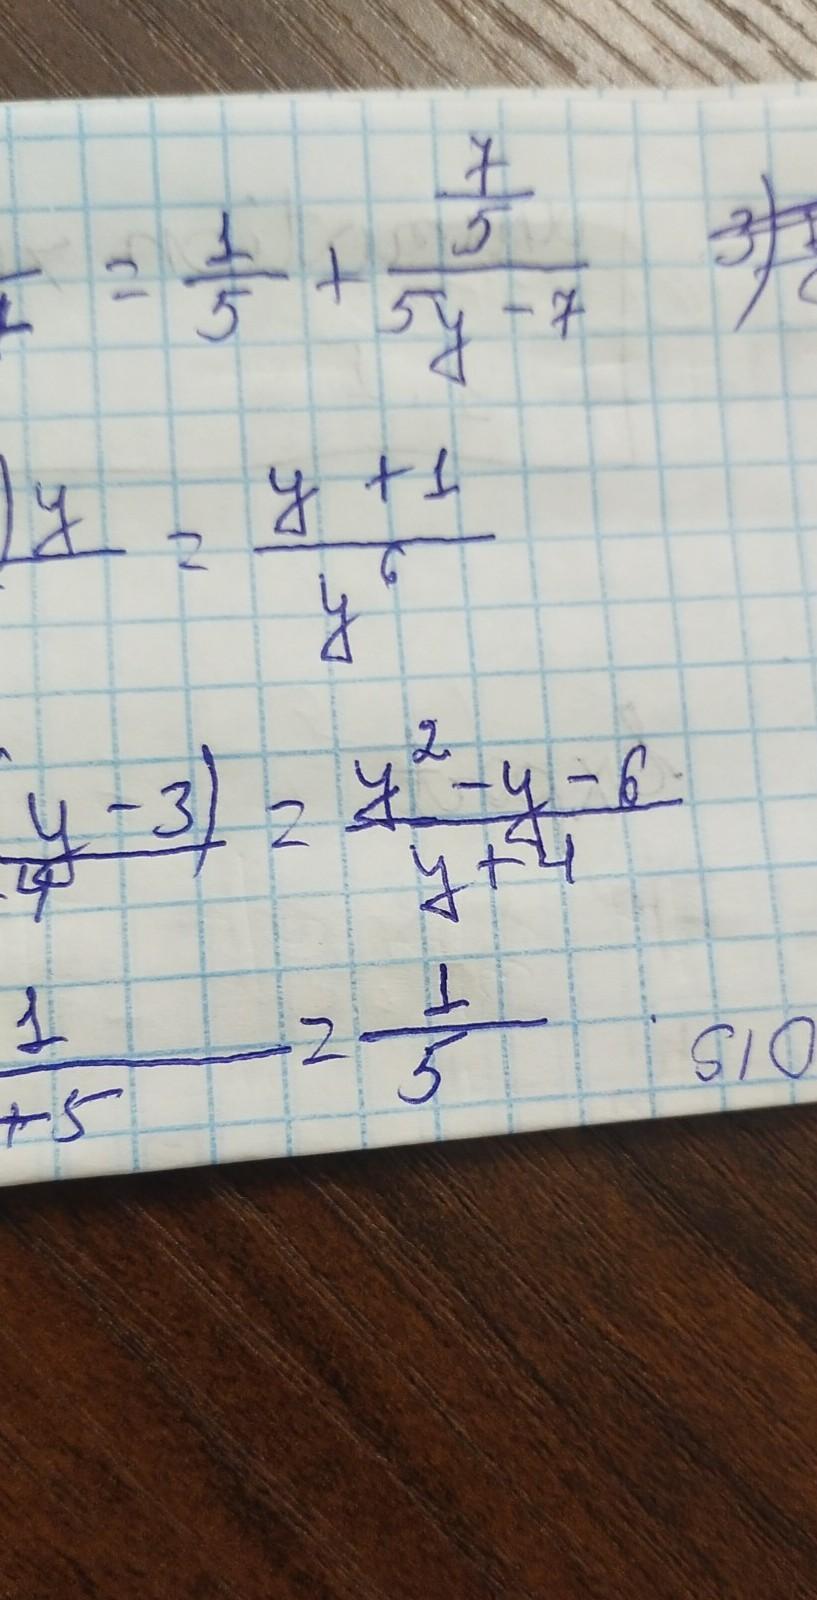 = 1/5 + (7/5)/(5y - 7) 3)
) y = (y + 1)/y⁶
y - 3) = (y² - y - 6)/(y + 4)
1/+5 = 1/5